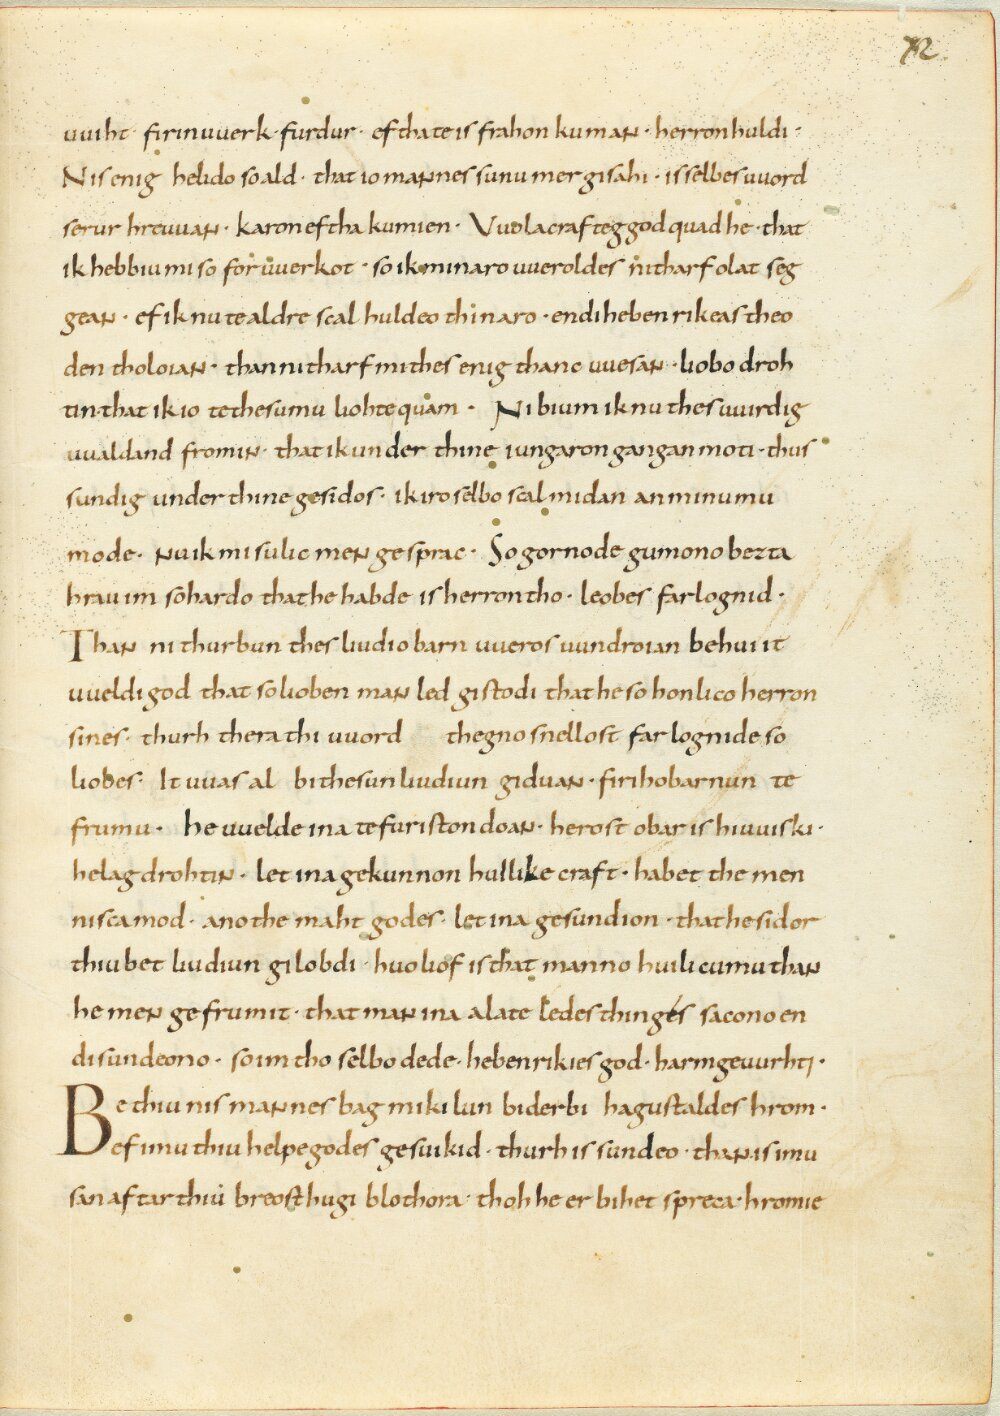 uuiht · firinuuerk · furdur · ef thate is frahon kuman · herron huldi ·
Nis enig helido so ald · that io mannes sunu mer gisahi · is selbes uuord
serur hreuuan · karon eftha kumien · Vuola crafteg god quad he · that
ik hebbiu mi so foruuerkot · so ik minaro uueroldes ni tharf olat seg
gean · ef ik nu te aldre scal huldeo thinaro · endi hebenrikeas theo
den tholoian · than ni tharf mi thes enig thanc uuesan · liobo droh
tin · that ik io te thesumu liohte quam · Ni bium ik nu thes uuirdig
uualdand fro min · that ik under thine iungaron gangan moti · thus
sundig under thine gesidos · ik iro selbo scal midan an minumu
mode · nu ik mi sulic men gesprac · So gornode gumono bezta
hrau im so hardo that he habde is herron tho · leobes farlognid ·
Than ni thurbun thes liudio barn uueros uundroian behui it
uueldi god that so lioben man led gistodi that he so honlico herron
sines · thurh thera thiuuuord thegno snellost farlognide so
liobes · It uuas al bi thesun liudiun giduan · firiho barnun te
frumu · he uuelde ina te furiston doan · herost obar is hiuuiski ·
helag drohtin · let ina gekunnon huilike craft · habet the men
nisca mod · ano the maht godes · let ina gesundion · that he sidor
thiu bet liudiun gilobdi · huo liof is that manno huilicumu than
he men gefrumit · that man ina alate ledes thinges sacono en
di sundeono · so im tho selbo dede · hebenrikies god · harmgeuurhti ·
Be thiu nis mannes bag mikilun biderbi hagustaldes hrom ·
ef imu thiu helpe godes gesuikid · thurh is sundeo · than is imu
san aftar thiu breosthugi blothora · thoh he er bihet spreca · hromie